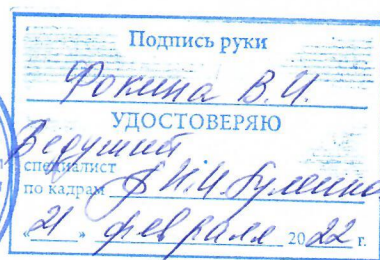 Подпись руки
Фокина В.И.
УДОСТОВЕРЯЮ
Ведущий
специалист
по кадрам И.И.
«21» февраля 2022 г.